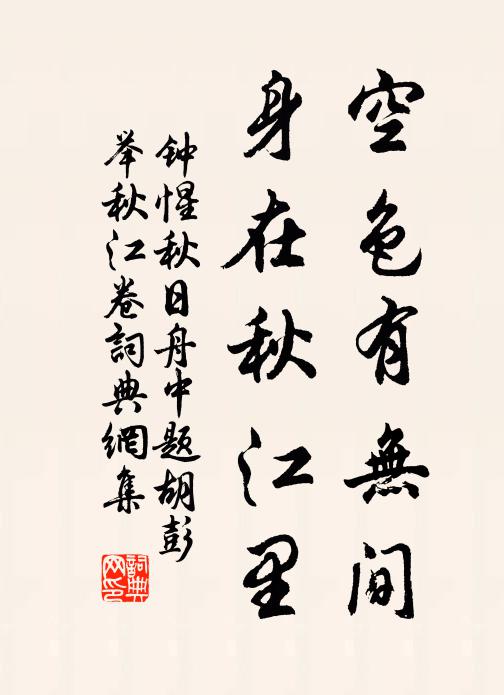 空色有無间
身在秋江里
钟惺秋日舟中题胡彭
举秋江卷詞典網集
詞典
网印